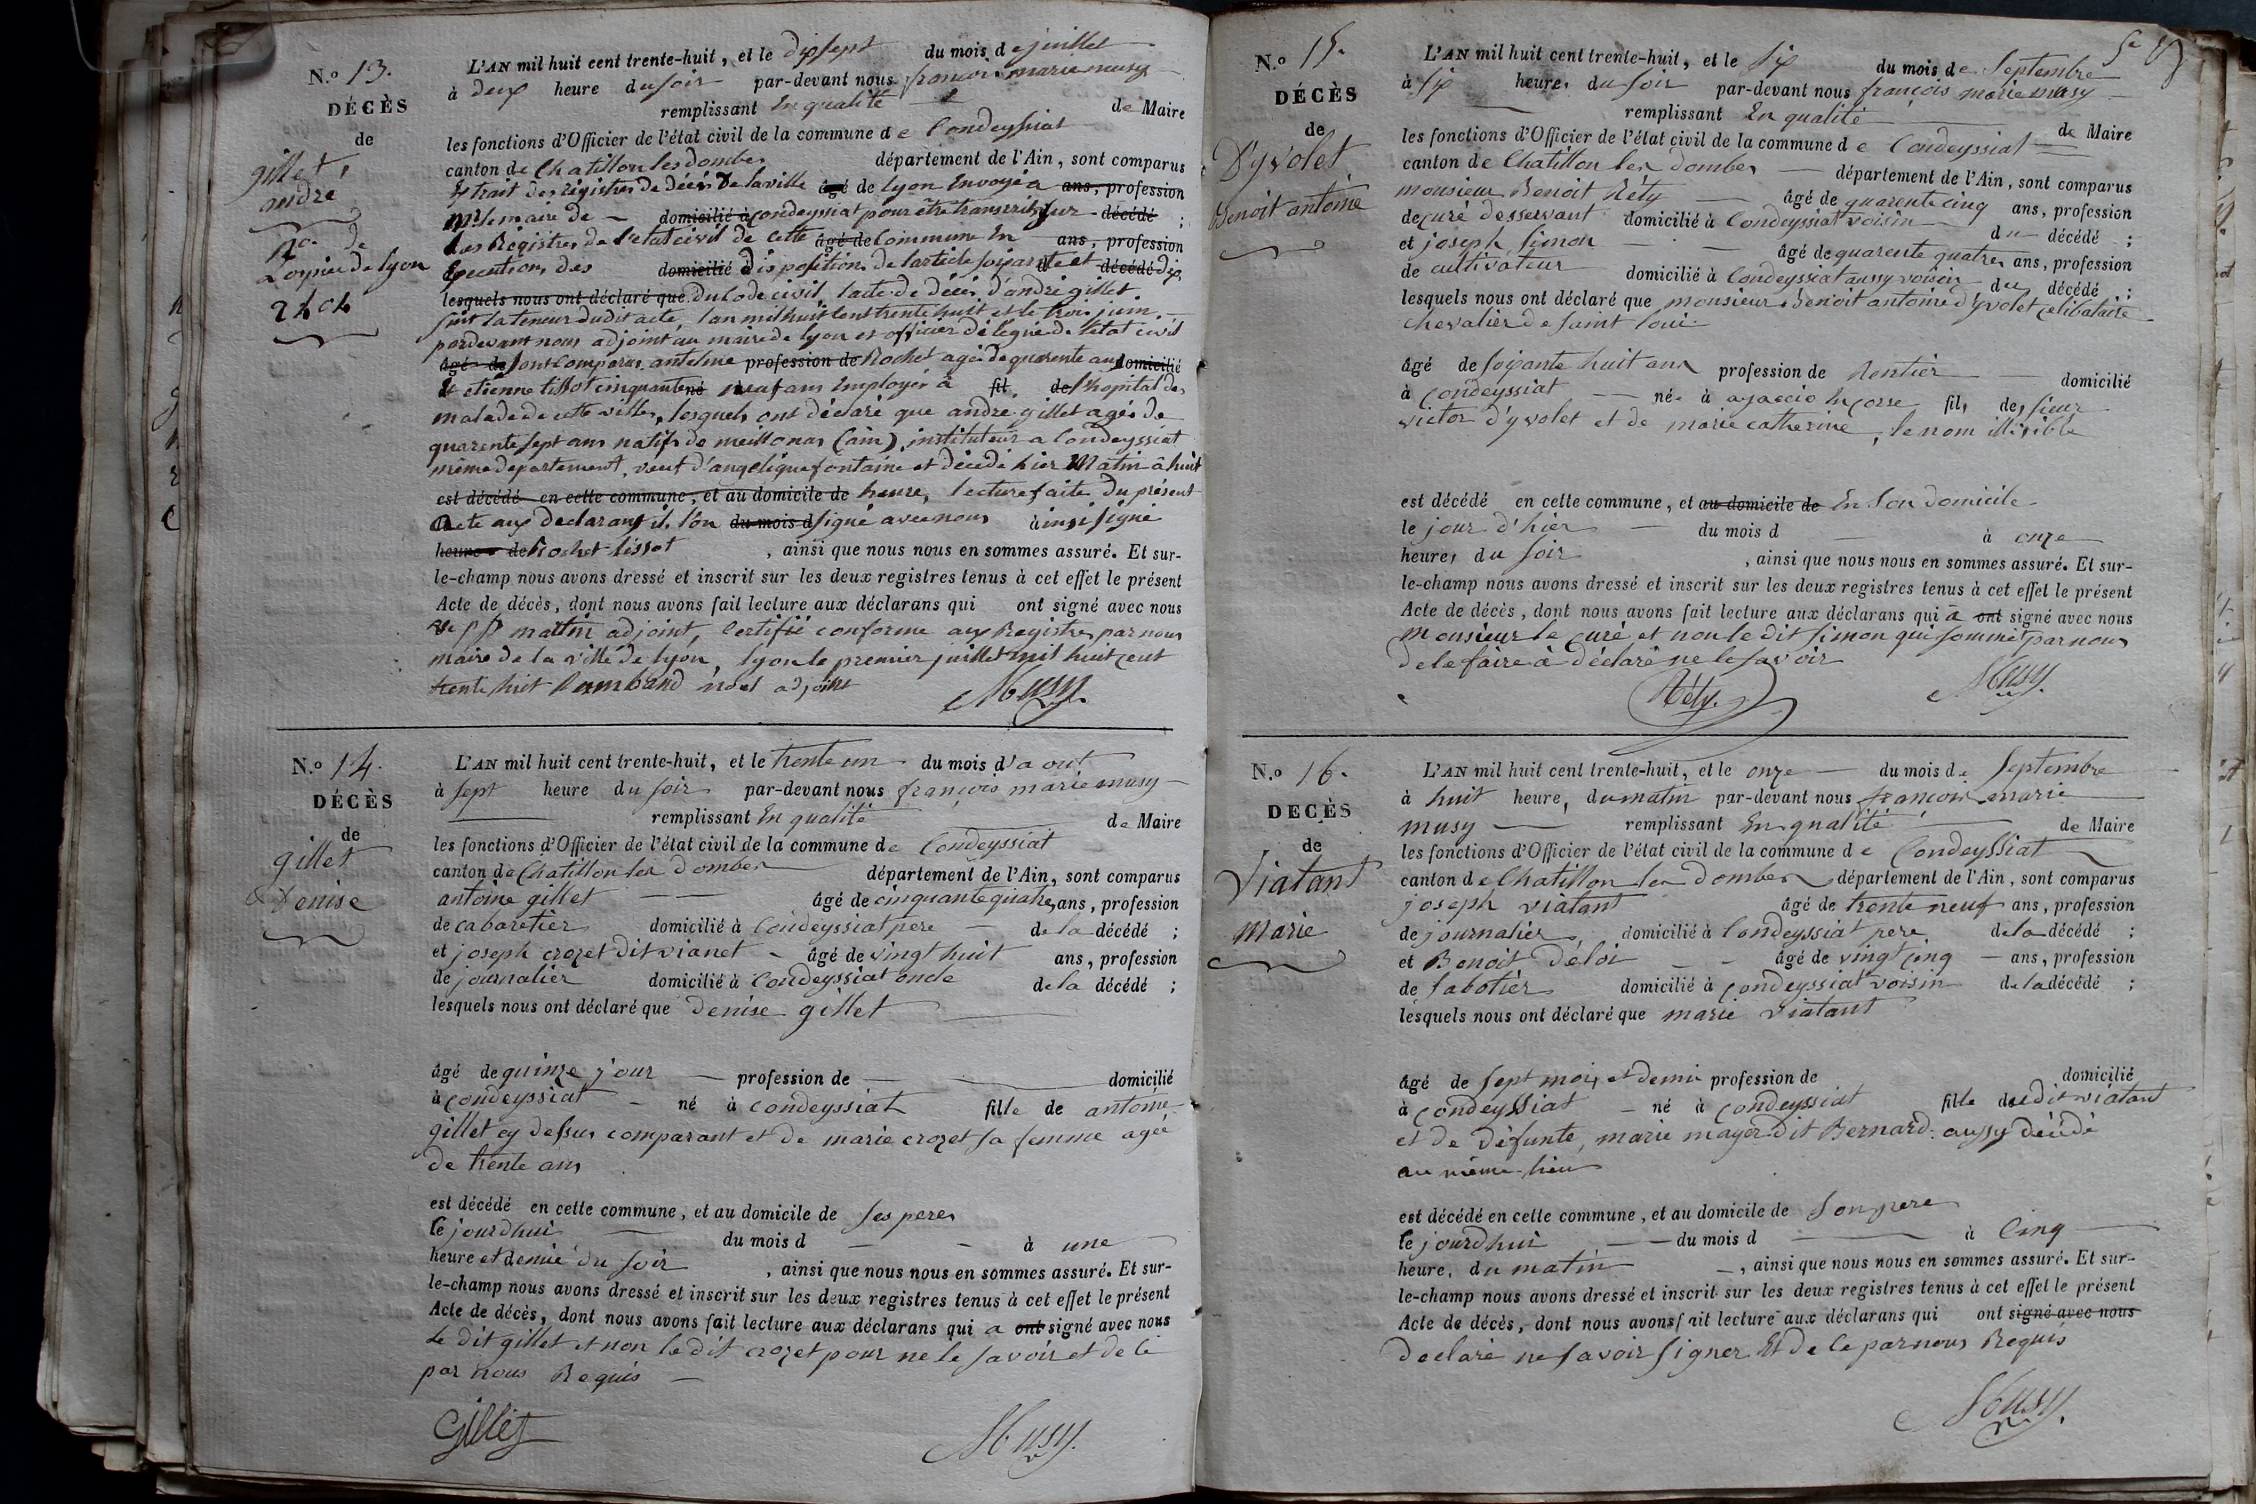 N.º 13.
DÉCÈS
de
gillet,
andré
nº de
L'ospice de lyon
2404
L'AN mil huit cent trente-huit, et le dixsept du mois de juillet
à deux heure du soir par-devant nous françois marie musy
remplissant En qualité de Maire
les fonctions d'Officier de l'état civil de la commune de Condeyssiat
canton de Chatillon les dombes département de l'Ain, sont comparus
Extrait des régistres de décés de la ville âgé de lyon Envoyé a ans, profession
Mr le maire de domicilié à condeyssiat pour être transcrit sur décédé ;
Les Régistres de l'etat civil de cette âgé de Commune En ans, profession
Execution des domicilié disposition de larticle soixante et décédé dix
lesquels nous ont déclaré que du Code civil, lacte de décés d'andré gillet
suit la teneur dudit acte, lan mil huit Cent trente huit et le trois juin
pardevant nous adjoint au maire de lyon et officier délégué de l'état civil
âgé de sont Comparus antelme profession de Rochet agé de quarente ans domicilié
et etienne tissot cinquante né neuf ans Employés à fil de l'hopital des
malade de cette ville, lesquels ont déclaré que andré gillet agé de
quarente sept ans natif de meillonas (ain), instituteur a Condeyssiat
même departement, veuf d'angelique fontaine et décédé hier Matin à huit
est décédé en cette commune, et au domicile de heure, lecture faite du présent
Acte aux declarant ils l'on du mois d signé avec nous ainsi signé
heure de Rochet tissot , ainsi que nous nous en sommes assuré. Et sur-
le-champ nous avons dressé et inscrit sur les deux registres tenus à cet effet le présent
Acte de décès, dont nous avons fait lecture aux déclarans qui ont signé avec nous
martin adjoint, Certifié conforme aux Registres par nous
maire de la ville de lyon, lyon le premier juillet mil huit cent
trente huit adjoint
Musy.
N.º 14.
DÉCÈS
de
gillet
denise
L'AN mil huit cent trente-huit, et le trente un du mois d'aout
à sept heure du soir par-devant nous françois marie musy
remplissant En qualité de Maire
les fonctions d'Officier de l'état civil de la commune de Condeyssiat
canton de Chatillon les dombes département de l'Ain, sont comparus
antoine gillet âgé de cinquante quatre ans, profession
de cabaretier domicilié à Condeyssiat pere de la décédé ;
et joseph crozet dit vianet âgé de vingt huit ans, profession
de journalier domicilié à Condeyssiat oncle de la décédé ;
lesquels nous ont déclaré que denise gillet
âgé de quinze jour profession de domicilié
à condeyssiat né à condeyssiat fille de antoine
gillet cy dessus comparant et de marie crozet sa femme agée
de trente ans
est décédé en cette commune, et au domicile de ses peres
le jourdhui du mois d à une
heure et demie du soir , ainsi que nous nous en sommes assuré. Et sur-
le-champ nous avons dressé et inscrit sur les deux registres tenus à cet effet le présent
Acte de décès, dont nous avons fait lecture aux déclarans qui a ont signé avec nous
Le dit gillet et non le dit crozet pour ne le savoir et de ce
par nous Requis
Gillet Musy.
5e
N.º 15.
DÉCÈS
de
D'yvolet
Benoit antoine
L'AN mil huit cent trente-huit, et le six du mois de Septembre
à six heures du soir par-devant nous françois marie musy
remplissant En qualité de Maire
les fonctions d'Officier de l'état civil de la commune de Condeyssiat
canton de Chatillon les dombes département de l'Ain, sont comparus
monsieur Benoit Réty âgé de quarente cinq ans, profession
de curé desservant domicilié à Condeyssiat voisin du décédé ;
et joseph simon âgé de quarente quatre ans, profession
de cultivateur domicilié à Condeyssiat aussy voisin du décédé ;
lesquels nous ont déclaré que monsieur Benoit antoine d'yvolet celibataire
chevalier de saint loui
âgé de soixante huit ans profession de Rentier domicilié
à condeyssiat né à ajaccio En corse fils de sieur
victor d'yvolet et de marie catherine, le nom illisible
est décédé en cette commune, et au domicile de En Son domicile
le jour d'hier du mois d à onze
heures du soir , ainsi que nous nous en sommes assuré. Et sur-
le-champ nous avons dressé et inscrit sur les deux registres tenus à cet effet le présent
Acte de décès, dont nous avons fait lecture aux déclarans qui à ont signé avec nous
Monsieur le curé et non le dit simon qui sommet par nous
de le faire à déclaré ne le savoir
Réty. Musy.
N.º 16.
DÉCÈS
de
Viatant
marie
L'AN mil huit cent trente-huit, et le onze du mois de Septembre
à huit heure, du matin par-devant nous françois marie
musy remplissant En qualité de Maire
les fonctions d'Officier de l'état civil de la commune de Condeyssiat
canton de Chatillon les Dombes département de l'Ain, sont comparus
joseph viatant âgé de trente neuf ans, profession
de journalier domicilié à Condeyssiat pere de la décédé ;
et Benoit déloi âgé de vingt cinq ans, profession
de Sabotier domicilié à condeyssiat voisin de la décédé ;
lesquels nous ont déclaré que marie viatant
âgé de sept mois et demi profession de domicilié
à condeyssiat né à condeyssiat fille du dit viatant
et de défunte, marie mayer dit Bernard aussy décédé
au même lieu
est décédé en cette commune, et au domicile de Son pere
le jourdhui du mois d à Cinq
heure, du matin , ainsi que nous nous en sommes assuré. Et sur-
le-champ nous avons dressé et inscrit sur les deux registres tenus à cet effet le présent
Acte de décès, dont nous avons fait lecture aux déclarans qui ont signé avec nous
Declaré ne savoir signer Et de ce par nous Requis
Musy.